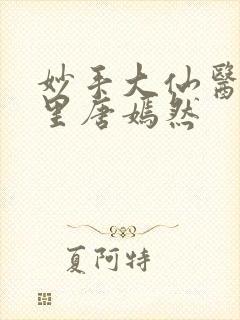 妙手大仙醫
里唐嫣然
夏阿特